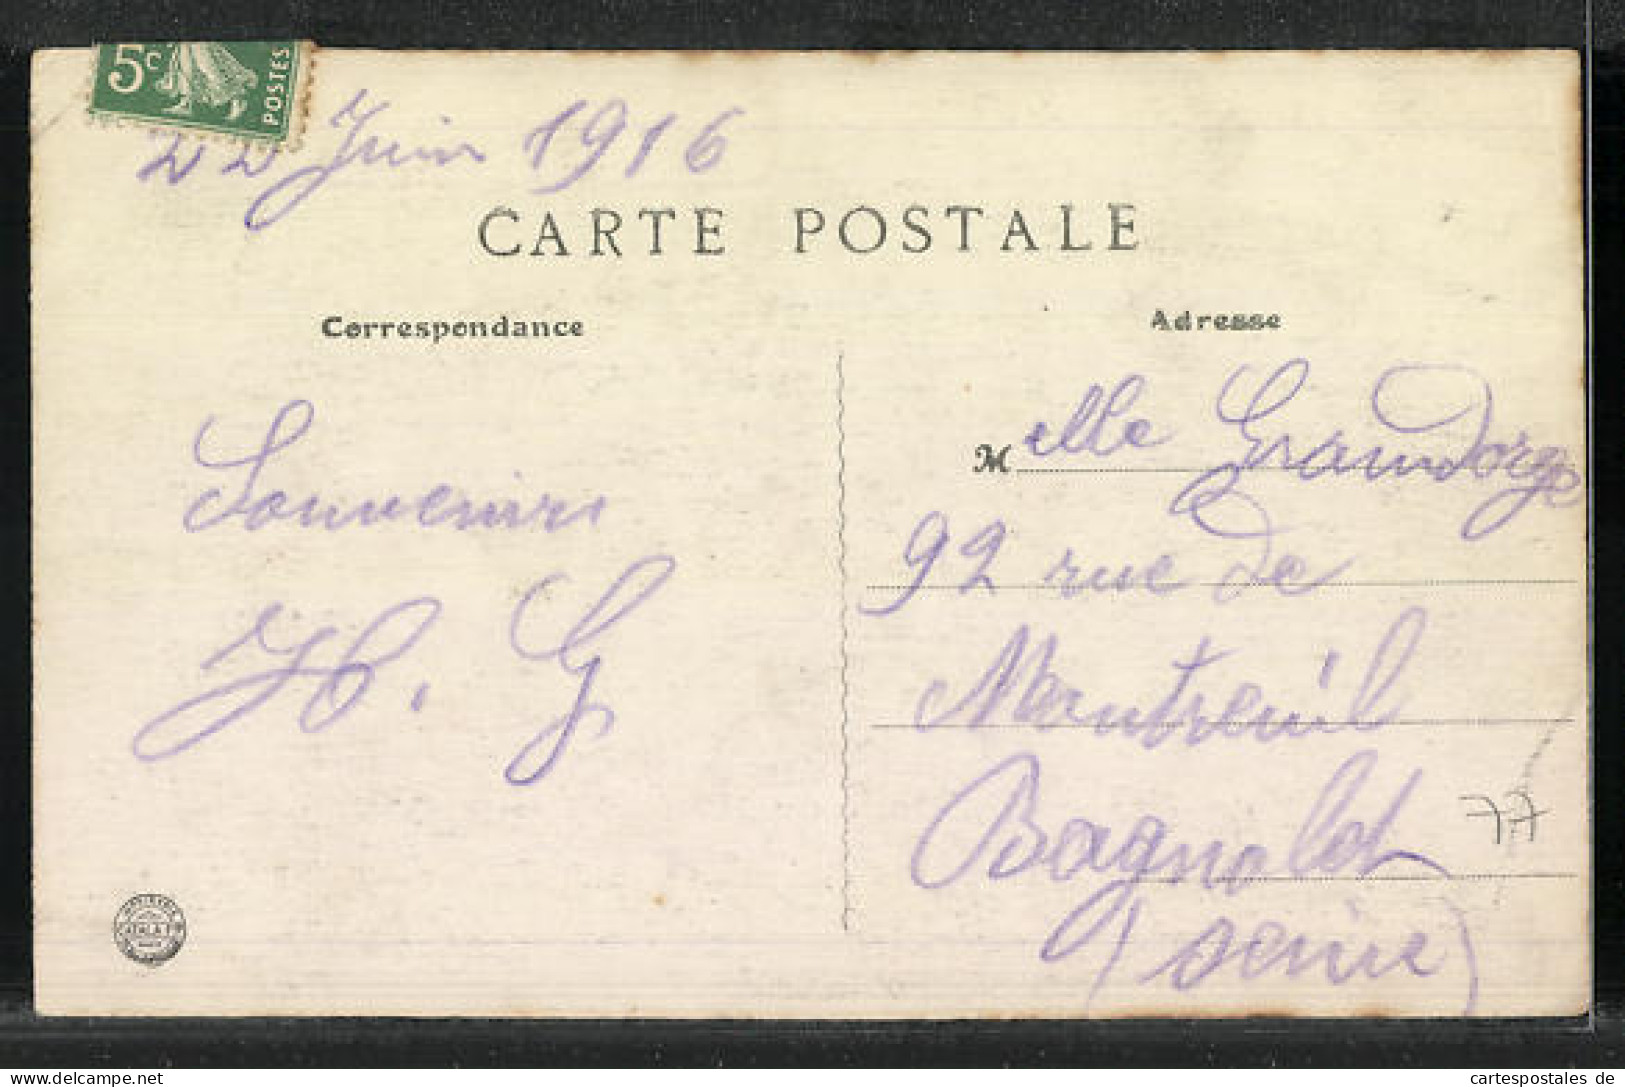 5c
POSTES
22 Juin 1916
CARTE POSTALE
Correspondance
Adresse
Souvenirs
H. G
Melle Grandorge
92 rue de
Montreuil
Bagnolet
(seine)
77
delcampe.net
cartespostales de